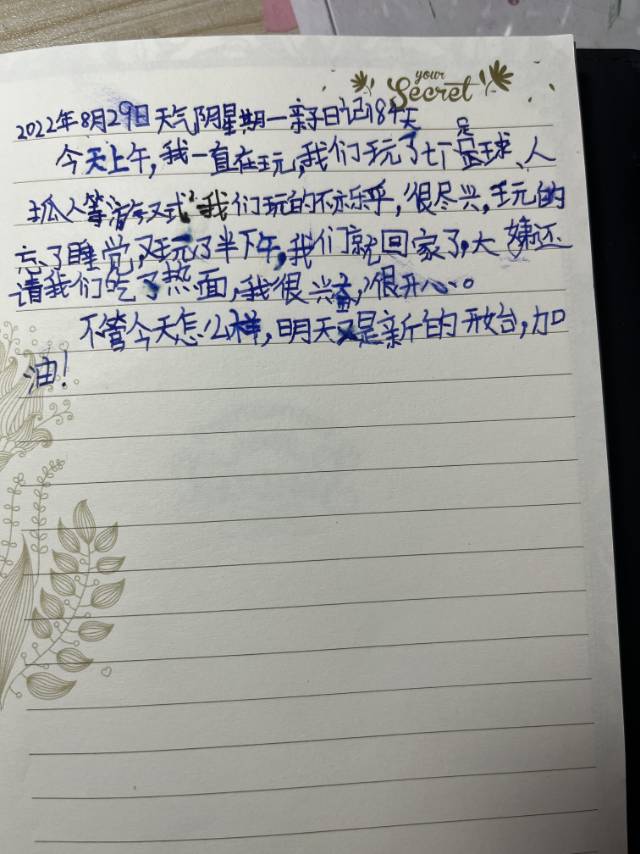 your
Secret
2022年8月29日 天气阴 星期一 亲子日记184天
今天上午,我一直在玩,我们玩了足球、人
抓人等游戏,我们玩的不亦乐乎,很尽兴,玩的
忘了睡觉,又玩了半下午,我们就回家了,大还
请我们吃了热面,我很兴奋,很开心。
不管今天怎么样,明天又是新的开始,加
油!